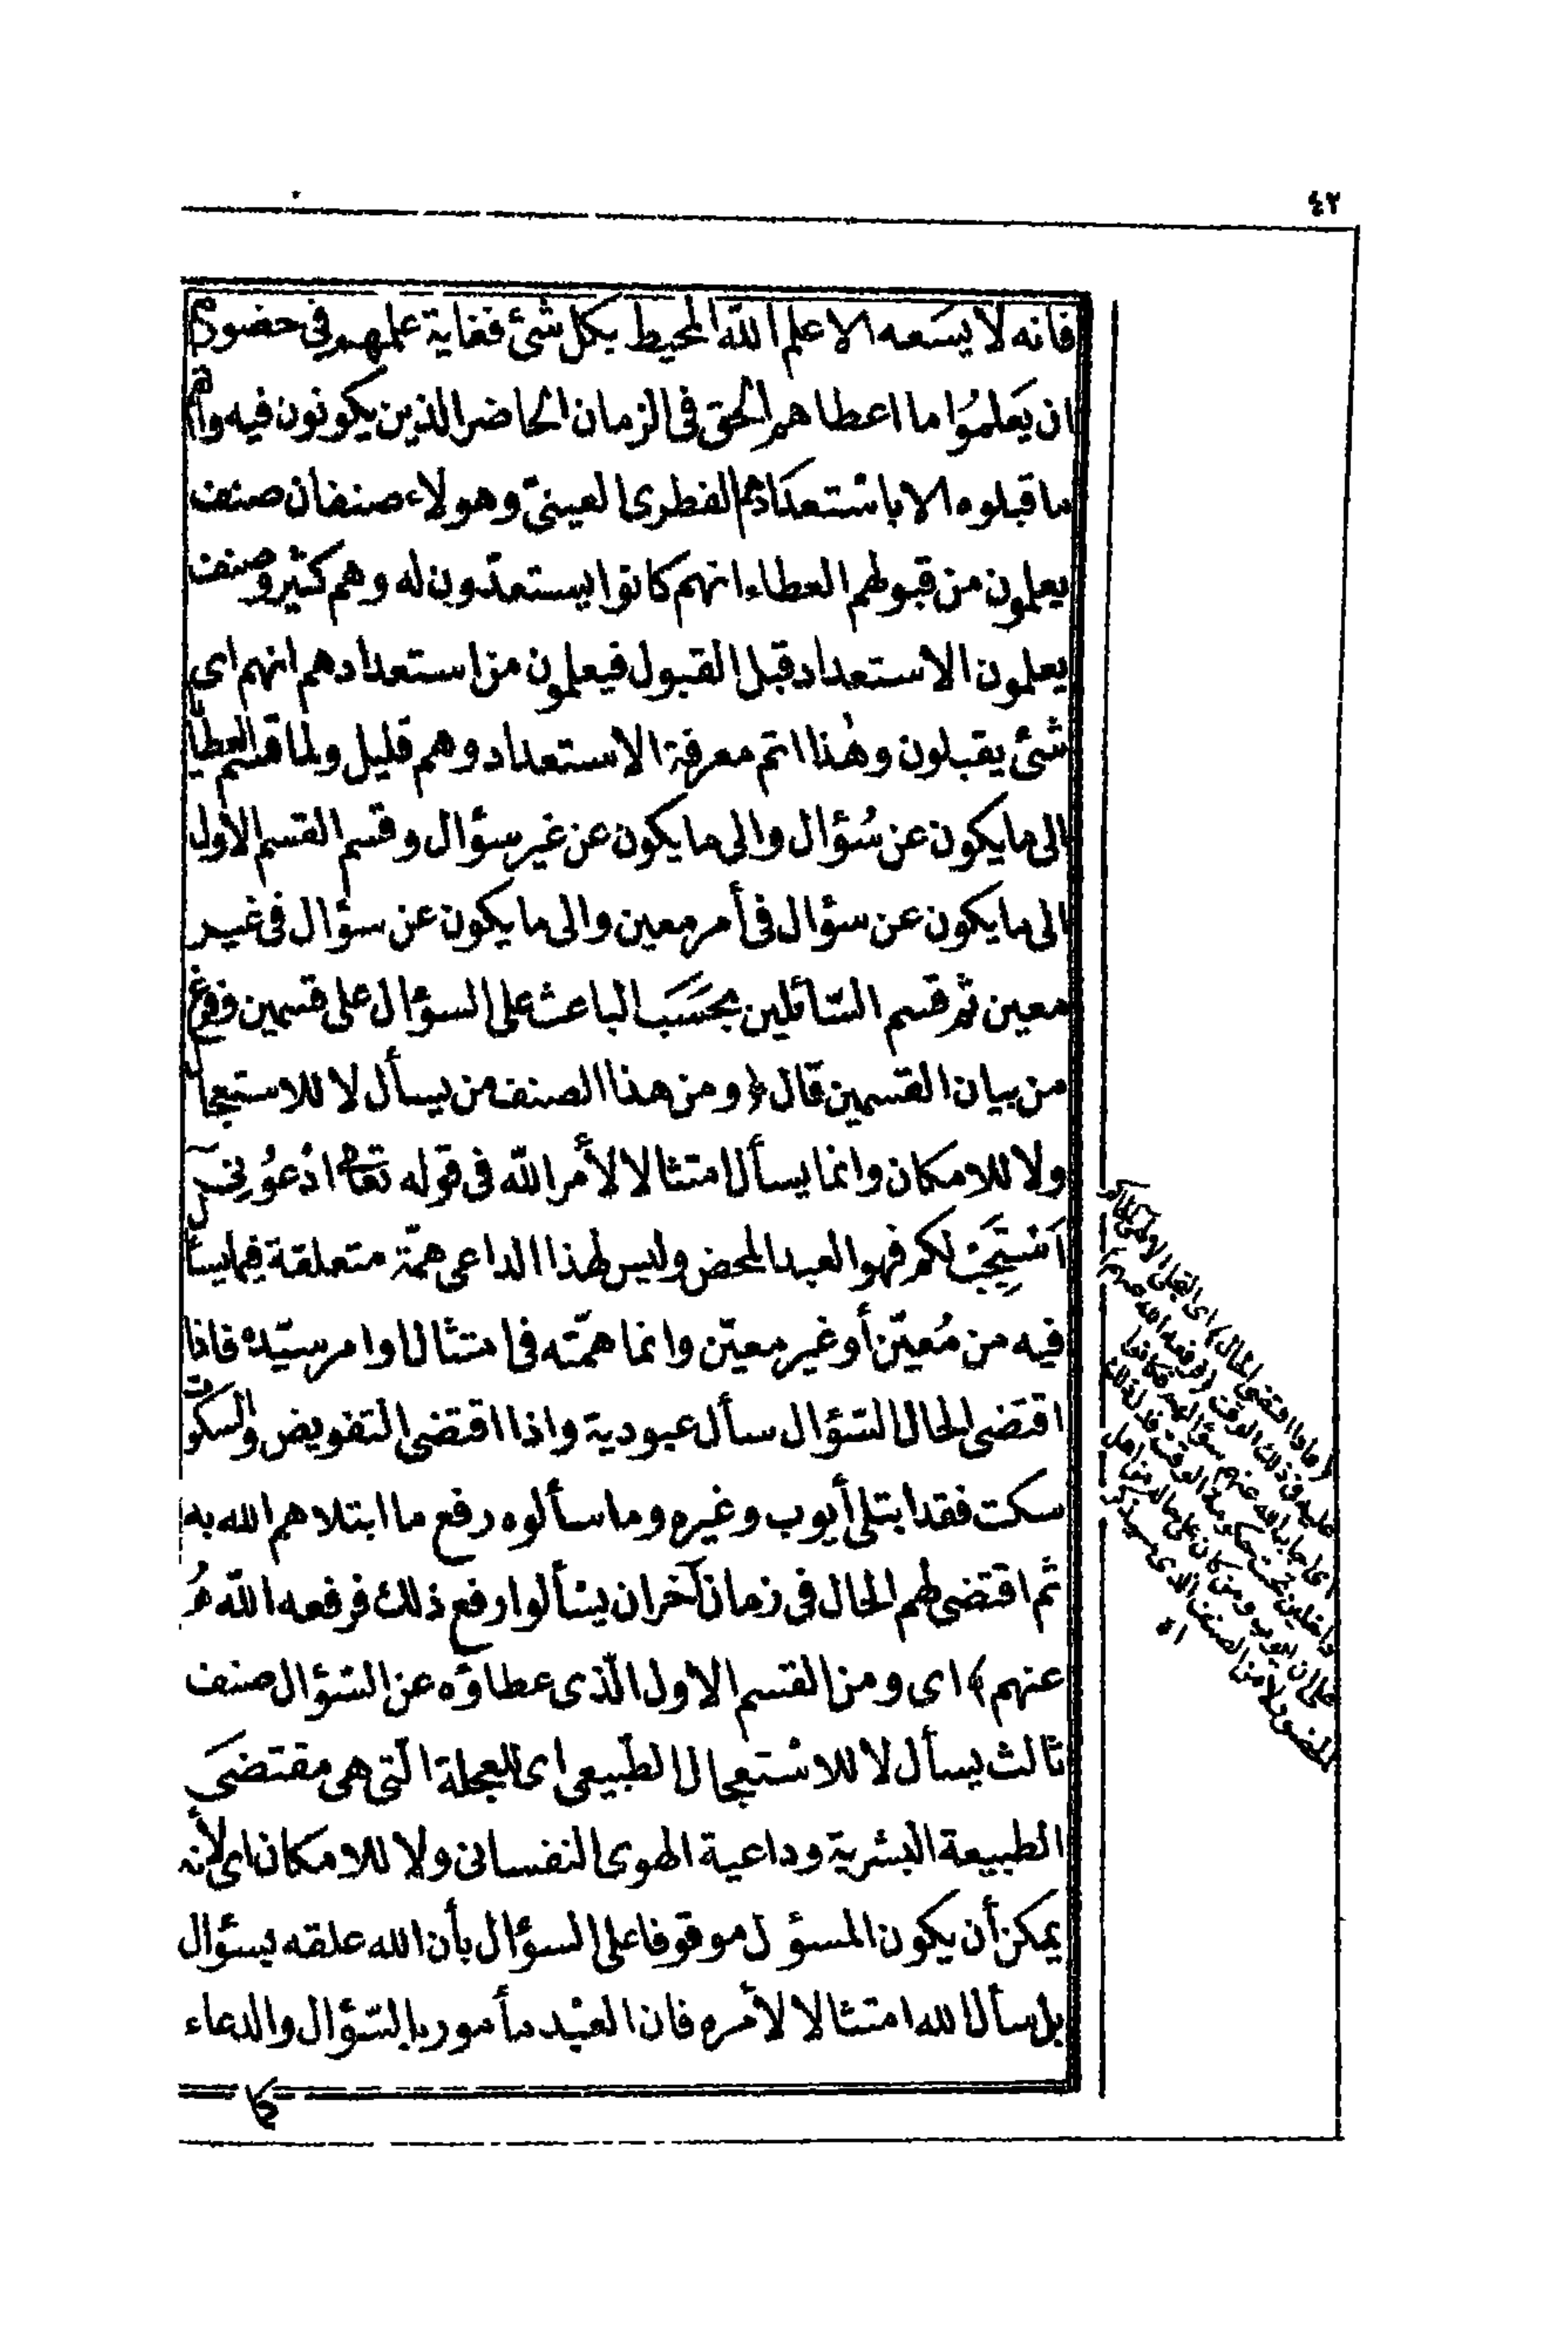 ٤٢
فانه لا يسَعه الا علم الله المحيط بكل شئ فغاية علمهم فى حضورهم
ان يَعلمُوا ما اعطاهم الحق فى الزمان الحاضر الذين يكونون فيه وانهم
ما قبلوه الا باستعدَادهم الفطرى العينىّ وهولاء صنفان صنف
يعلمون من قبولهم العطاء انهم كانوا يستعدّون له وهم كثير وصنف
يعلمون الاستعداد قبل القبول فيعلمون من استعدادهم انهم اى
شئ يقبلون وهٰذا اتم معرفة الاستعداد وهم قليل ولما قسم العطايا
الى ما يكون عن سُؤال والى ما يكون عن غير سؤال وقسم القسم الاول
الى ما يكون عن سؤال فى أمر معين والى ما يكون عن سؤال فى غير
معين ثم قسم السّائلين بحسَب الباعث على السؤال على قسمين ففرغ
من بيان القسمين قال ﴿ ومن هذا الصنف من يسأل لا للاستعجال
ولا للامكان وانما يسأل امتثالا لأمر الله فى قوله تعالى ادْعُونِى
اَسْتَجِبْ لكم فهو العبد المحض وليس لهذا الداعى همّة متعلقة فيما يسأل
فيه من مُعيّن أو غير معيّن وانما همّته فى امتثال اوامر سيّده فاذا
اقتضى الحال السّؤال سأل عبودية واذا اقتضى التفويض والسكوت
سكت فقد ابتلى أيوب وغيره وما سألوه رفع ما ابتلاهم الله به
ثم اقتضى لهم الحال فى زمان آخر ان يسألوا رفع ذلك فرفعه الله
عنهم ﴾ اى ومن القسم الاول الّذى عطاؤه عن السّؤال صنف
ثالث يسأل لا للاسْتعجال الطّبيعى اى للعجلة الّتى هى مقتضَى
الطبيعة البشرية وداعية الهوى النفسانى ولا للامكان اى لأنه
يمكن أن يكون المسؤل موقوفا على السؤال بأن الله علقه بسؤال
بل سأل الله امتثالا لأمره فان العبْد مأمور بالسّؤال والدعاء
كا